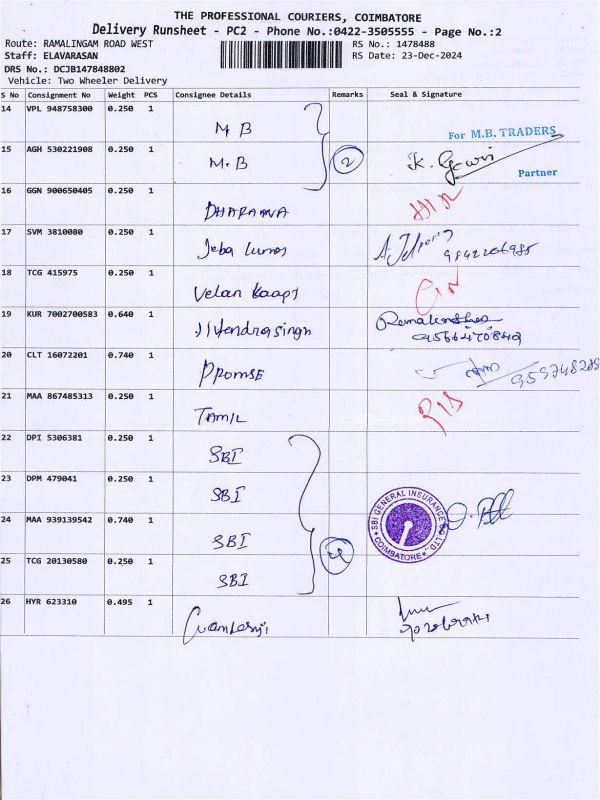 THE PROFESSIONAL COURIERS, COIMBATORE
Delivery Runsheet - PC2 - Phone No.:0422-3505555 - Page No.:2
Route: RAMALINGAM ROAD WEST RS No.: 1478488
Staff: ELAVARASAN RS Date: 23-Dec-2024
DRS No.: DCJB147848802
Vehicle: Two Wheeler Delivery
S No Consignment No Weight PCS Consignee Details Remarks Seal & Signature
14 VPL 948758300 0.250 1 M B For M.B. TRADERS
15 AGH 530221908 0.250 1 M.B 2 K. Gowri Partner
16 GGN 900650405 0.250 1 DHARAANA
17 SVM 3810080 0.250 1 Jeba 9842206985
18 TCG 415975 0.250 1 Velan
19 KUR 7002700583 0.640 1 Jitendrasingh 9566470849
20 CLT 16072201 0.740 1 PROMSE
21 MAA 867485313 0.250 1 TAMIL
22 DPI 5306381 0.250 1 SBI
23 DPM 479041 0.250 1 SBI SBI GENERAL INSURANCE CO LTD., COIMBATORE
24 MAA 939139542 0.740 1 SBI 4
25 TCG 20130580 0.250 1 SBI
26 HYR 623310 0.495 1